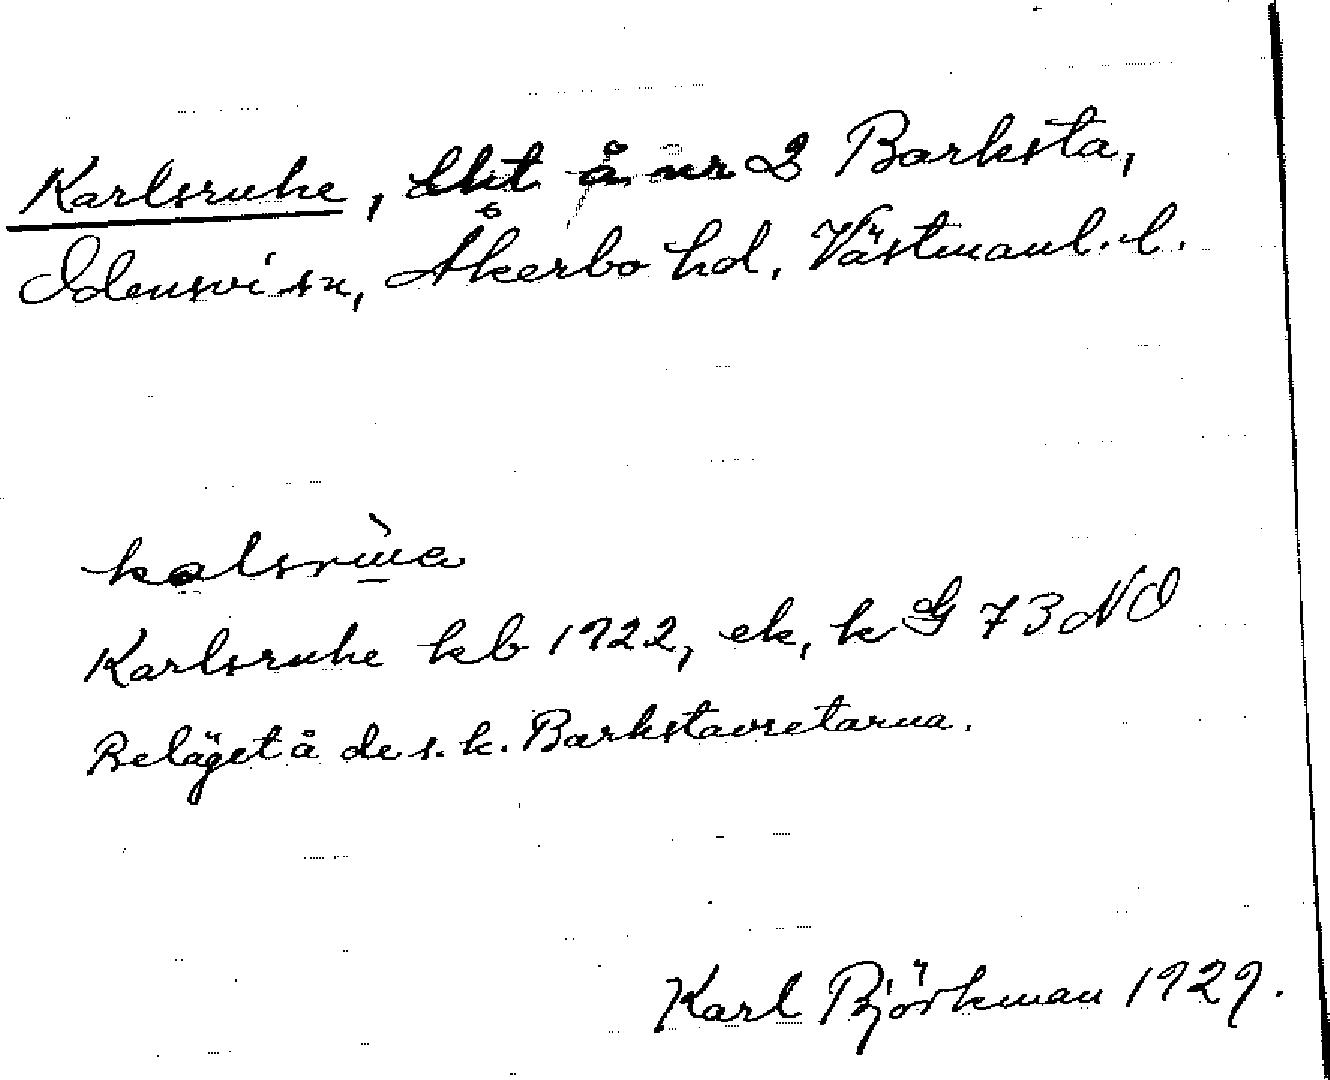 Karlsruhe, lht å nr 2 Barksta,
Odensvi sn, Åkerbo hd, Västmanl. l.
kalsrùa
Karlsruhe kb 1922, ek, k G 73 NO
Beläget å de s.k. Barkstaorsetarna.
Karl Björkman 1929.